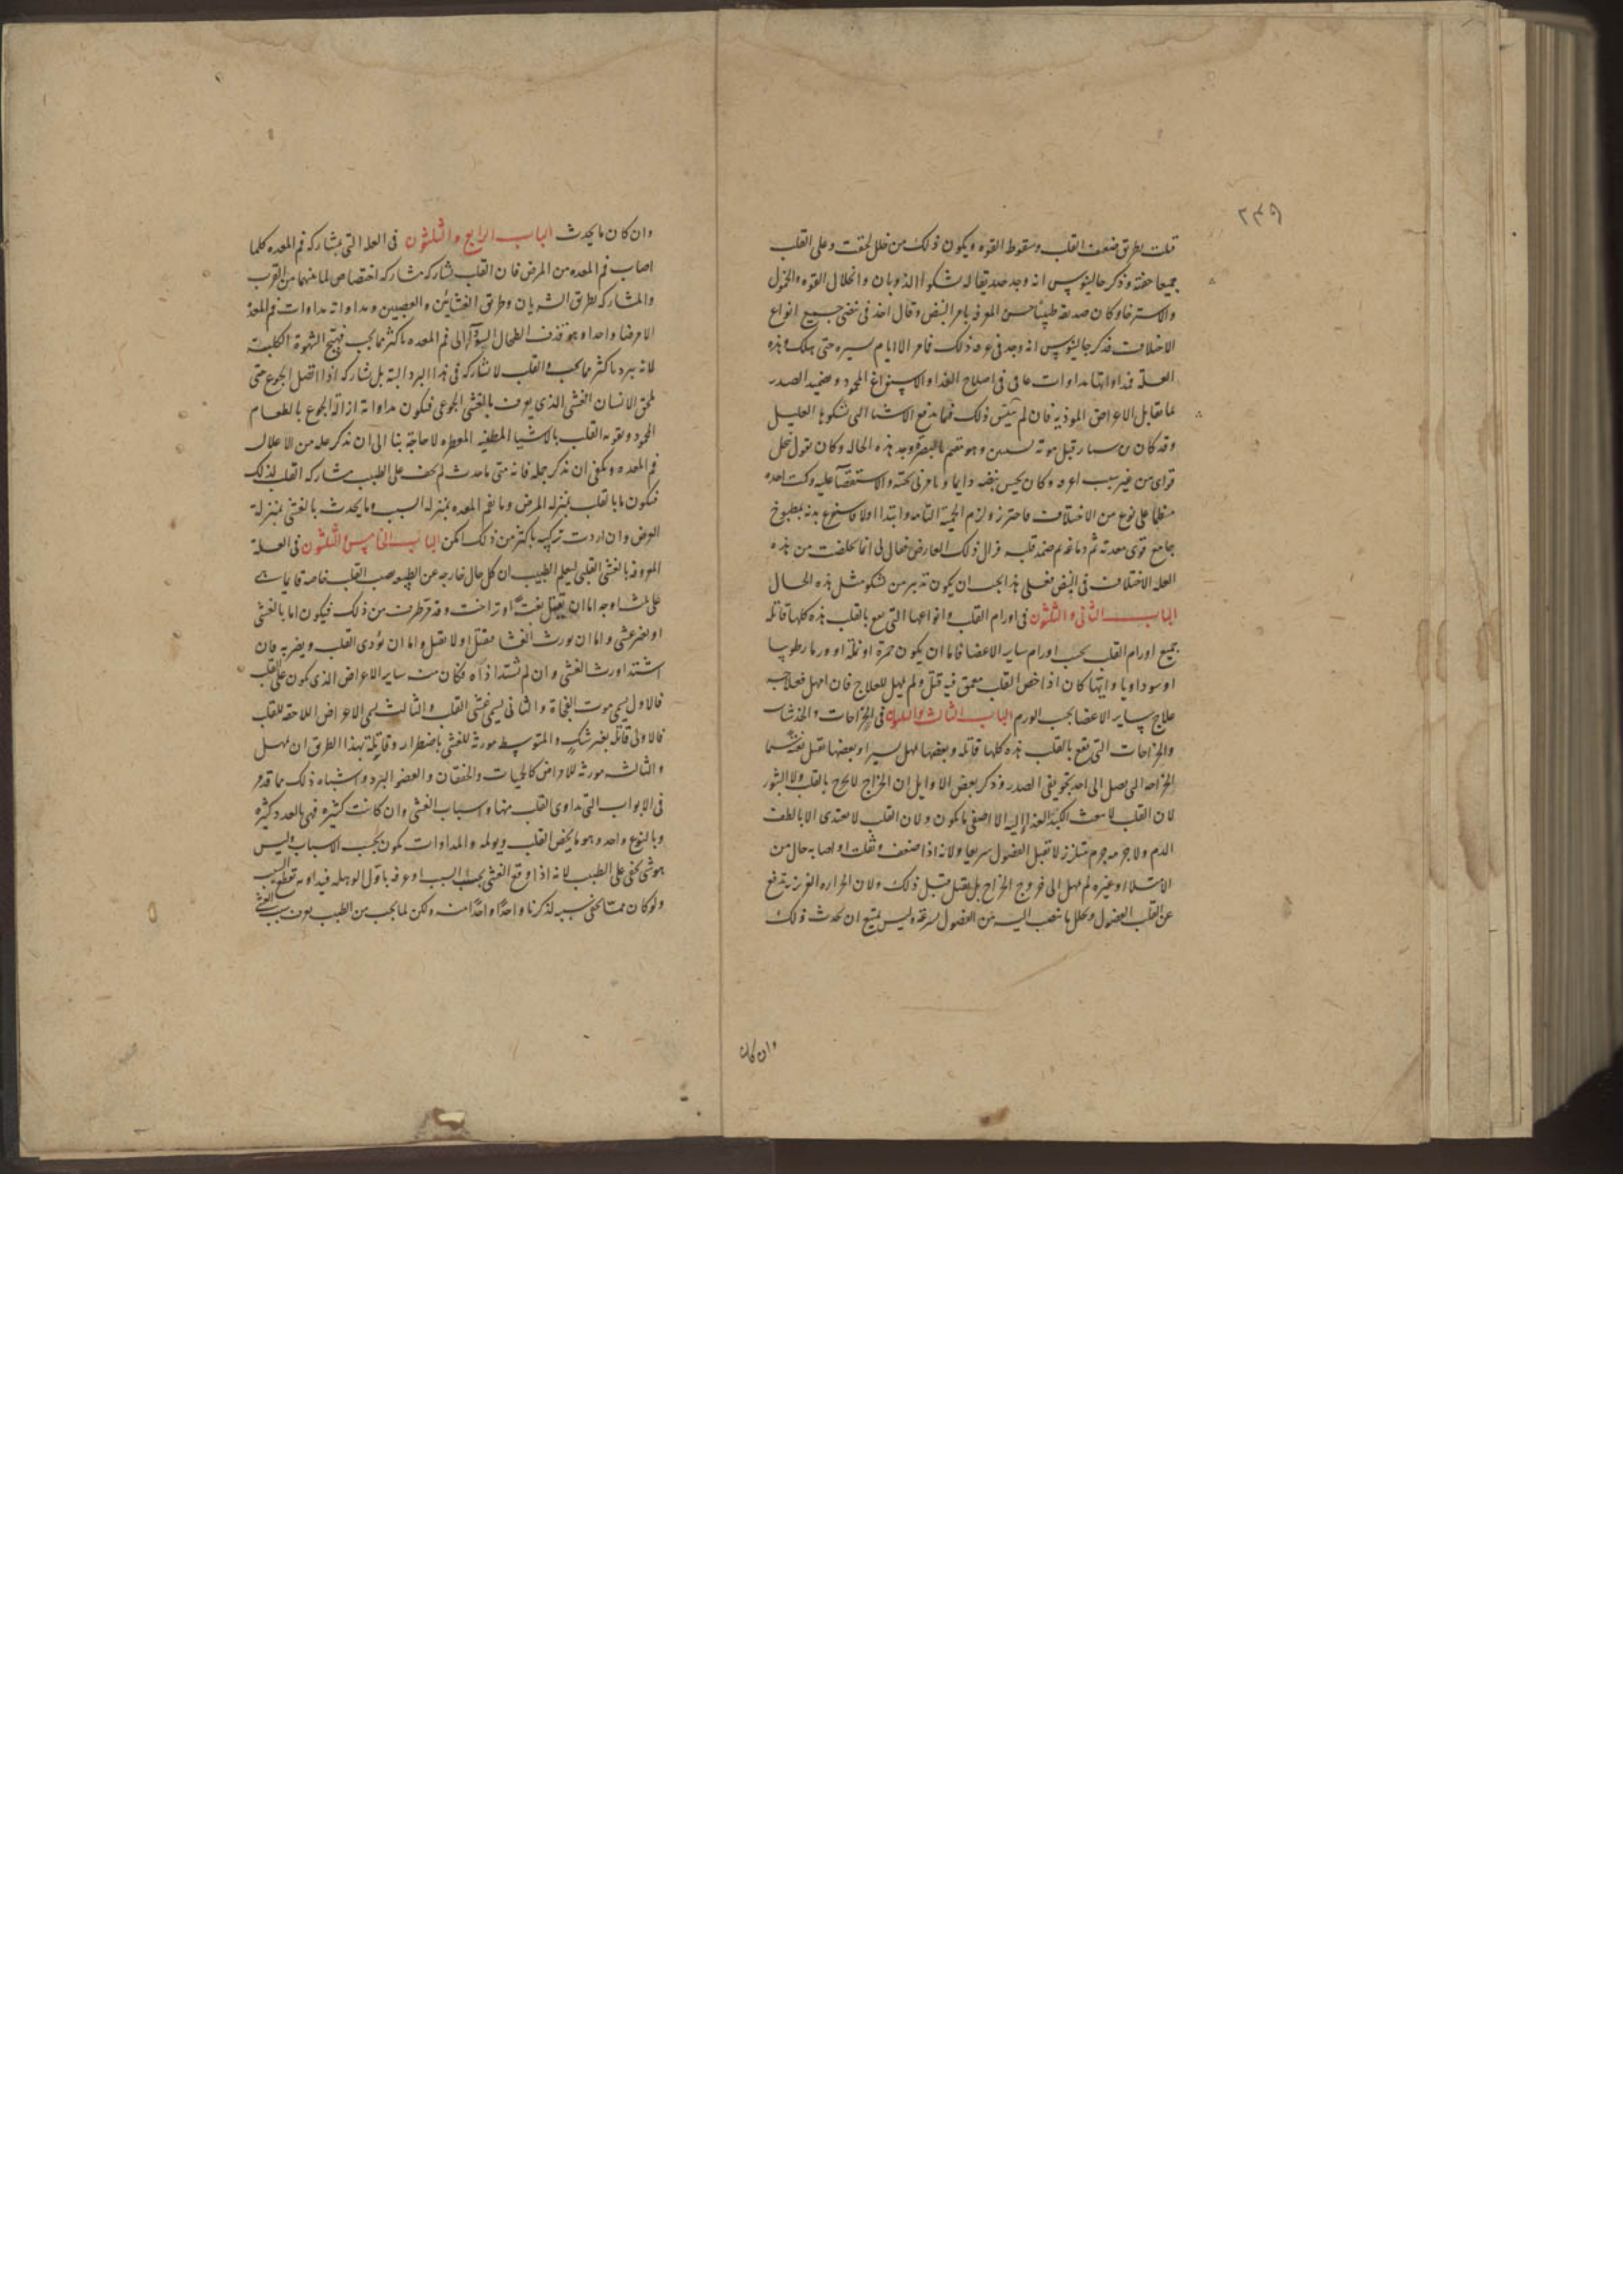 ٢٣٩
قلت بطريق ضعف القلب وسقوط القوه ويكون ذلك من خلل لحقت وعلى القلب
جميعا حفته وذكر جالينوس انه وجد صديقا له شكوا الذوبان وانحلال القوه والخمول
والاسترخا وكان صديقه طبيبا حسن المعرفه بامر النبض وقال اخذ فى نبضى جميع انواع
الاختلاف فذكر جالينوس انه وجد فى عرقه ذلك فامر الا ايام يسيره حتى هلك وهذه
العلة فمداواتها مداوات عامى فى اصلاح الغذا والاستفراغ المحمود وضميد الصدر
بما يقابل الاعراض الموذيه فان لم يتبين ذلك فبما يدفع الاشيا التى يشكوها العليل
وقد كان بن سيار قبل موته بسنين وهو مقيم بالبصره وجد هذه الحاله وكان يقول تنحل
قواى من غير سبب اعرفه وكان يحبس نبضه دايما ويامرنى بجسه والاستقصا عليه وكنت اجده
منطبا على نوع من الاختلاف فاحترز ولزم الحمية التامه وابتدا اولا فاستفرغ بدنه بمطبوخ
جامع قوى معدته ثم دماغه ثم ضمد قلبه فزال ذلك العارض فقال لى انما تخلصت من هذه
العله الاختلاف فى النبض فعلى هذا يجب ان يكون تدبير من يشكو مثل هذه الحال
الباب الثانى والثلثون فى اورام القلب وانواعها التى تقع بالقلب هذه كلها قاتله
جميع اورام القلب بحسب اورام ساير الاعضا فاما ان يكون حمرة او نملة او ورما رطوبيا
او سوداويا وايتها كان اذا خص القلب معمق فيه قتل ولم يمهل للعلاج فان امهل فعلاجه
علاج ساير الاعضا بحسب الورم الباب الثالث والثلثون فى الخراجات والخدشات
والجراحات التى تقع بالقلب هذه كلها قاتله وبعضها يمهل يسيرا وبعضها يقتل بغتة سيما
الجراحه التى تصل الى احد تجويفى الصدر وذكر بعض الاوايل ان الخراج لا يخرج بالقلب ولا البثور
لان القلب لا يبعث الكبد الغذا اليه الا اصفى ما يكون ولان القلب لا يغتذى الا بالطف
الدم ولا جرمه جرم متلزز لا يقبل الفضول سريعا ولانه اذا ضعف وثقلت او اصابه حال من
الامتلا او غيره لم يمهل الى خروج الخراج بل يقتل قبل ذلك ولان الحراره الغريزية تدفع
عن القلب الفضول ويحلل ما ينصب اليه من الفضول بسرعة وليس يمتنع ان يحدث ذلك
وان كان
وان كان ما يحدث الباب الرابع والثلثون فى العله التى بمشاركه فم المعده كلما
اصاب فم المعده من المرض فان القلب يشاركه مشاركه اختصاص لما بينهما من القرب
والمشاركه بطريق الشريان وطريق الغشائين والعصبين ومداواته مداوات فم المعدة
الا مرضا واحدا وهو قذف الطحال السودا الى فم المعده باكثر مما يجب فيهيج الشهوة الكلبية
لانه يبرد باكثر مما يجب والقلب لا يشاركه فى هذا البرد البته بل يشاركه اذا اتصل الجوع حتى
يلحق الانسان الغشى الذى يعرف بالغشى الجوعى فيكون مداواته ازالة الجوع بالطعام
المحمود وتقويه القلب بالاشيا المطيبه العطره لا حاجة بنا الى ان نذكر عله من الاعلال
فم المعده ويكفى ان نذكر جمله فانه متى ما حدث لم يخف على الطبيب مشاركه القلب لذلك
فيكون ما بالقلب بمنزله المرض وما بفم المعده بمنزله السبب وما يحدث بالغشى بمنزلة
العرض وان اردت تركيبه باكثر من ذلك امكن الباب الخامس والثلثون فى العلة
المعروفه بالغشى القلبى ليعلم الطبيب ان كل حال خارجه عن الطبيعه تصيب القلب خاصة فانها تاتى
على ثلثة اوجه اما ان يقتل بغتة او تراخت وقد فرطت من ذلك فيكون اما بالغشى
او بغير غشى واما ان يورث الغشا فيقتل او لا يقتل واما ان يؤدى القلب ويضر به فان
اشتد اورث الغشى وان لم يشتد اذاه فكان من ساير الاعراض الذى تكون على القلب
فالاول يسمى موت الفجاة والثانى يسمى غشى القلب والثالث يسمى الاعراض اللاحقه للقلب
فالاولى قاتلة بغير شك والمتوسط مورثه للغشى باضطرار وقاتلة بهذا الطريق ان يمهل
والثالث مورثه للامراض كالحميات والخفقان والعضو البرد واشباه ذلك مما قدم
فى الابواب التى تداوى القلب منها واسباب الغشى وان كانت كثيره فهى بالعدد كثيره
وبالنوع واحد وهو ما يخص القلب ويولمه والمداوات تكون بحسب الاسباب وليس
هو شى يخفى على الطبيب لانه اذا وقع الغشى بحسب السبب او عرفه باول الوهله فيداويه بقطع السبب
ولو كان مما يخفى نسيبه لذكرنا واحدا واحدا منه ولكن لما يجب من الطبيب يعرف سبب الغشى